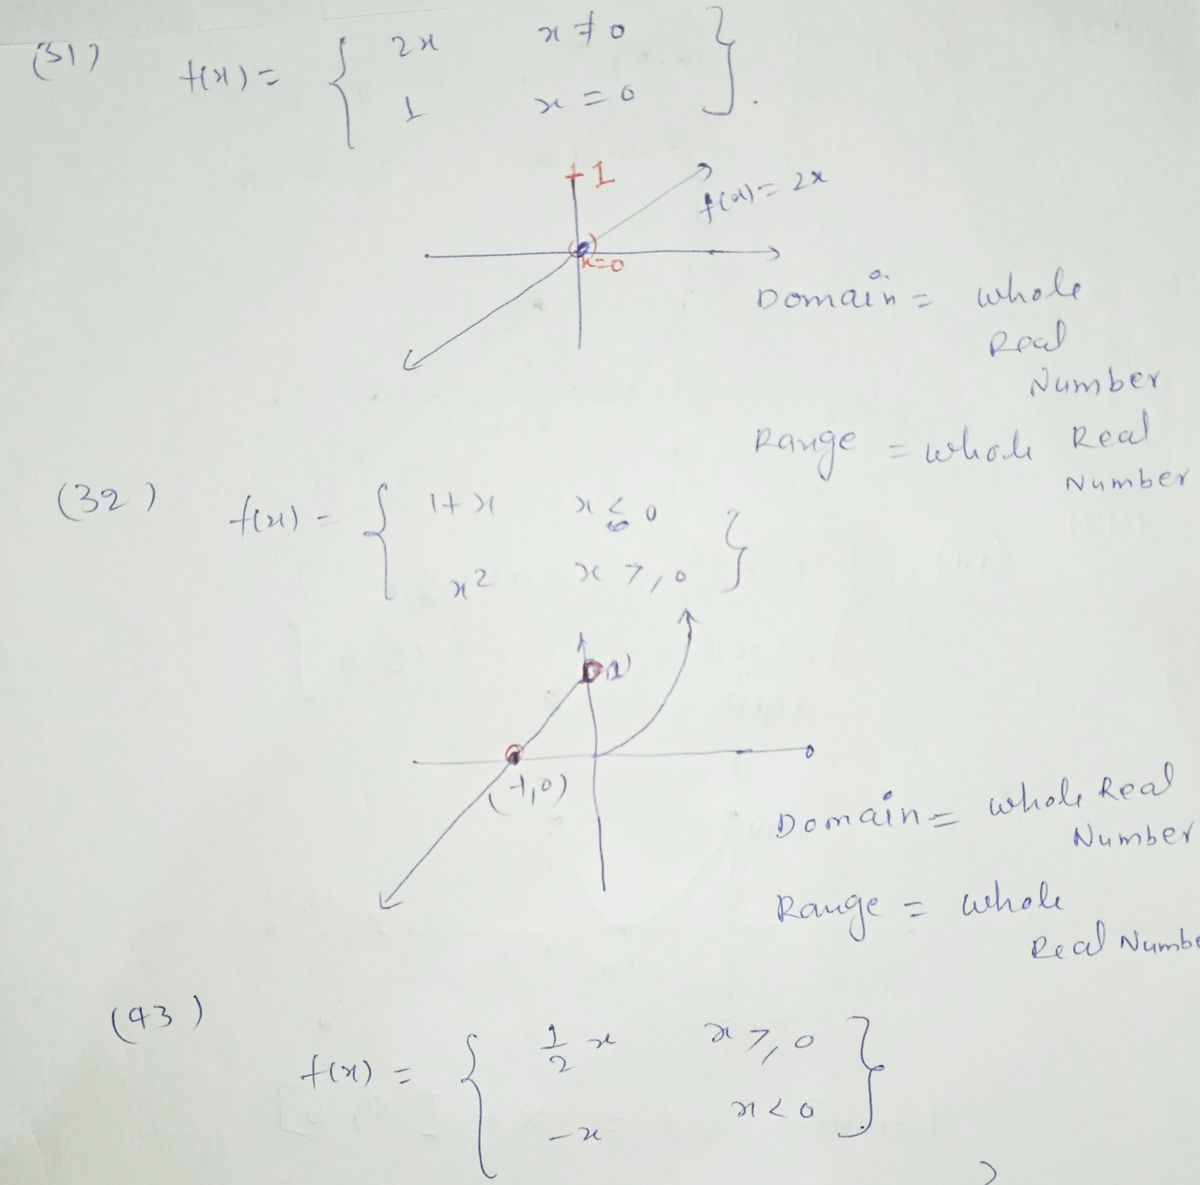 (31) f(x) = { 2x x ≠ 0
1 x = 0 }.
1
f(x) = 2x
x=0
Domain = whole
Real
Number
Range = whole Real
Number
(32) f(x) = { 1+x x < 0
x² x ≥ 0 }
(-1,0)
Domain = whole Real
Number
Range = whole
Real Numbe
(43)
f(x) = { 1/2 x x ≥ 0
-x x < 0 }